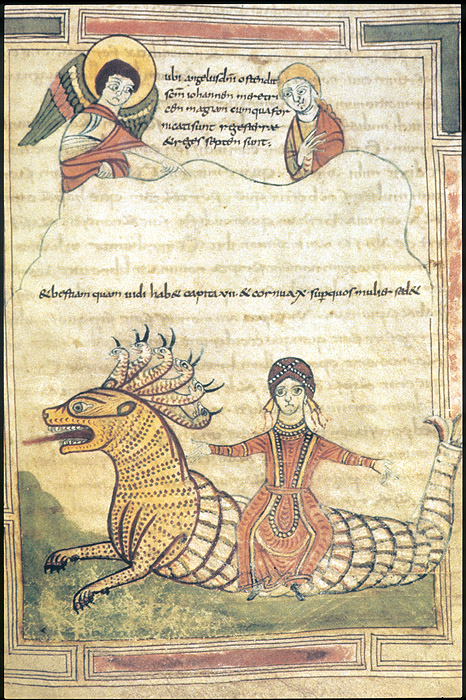 ubi angelus dnī ostendit
scm̄ iohannen meretri
cen magnan cum qua for
nicati sunt reges terrae
& reges septen sunt.
& bestiam quam uidi habe& capta uii & cornua x sup quos mulier sed&